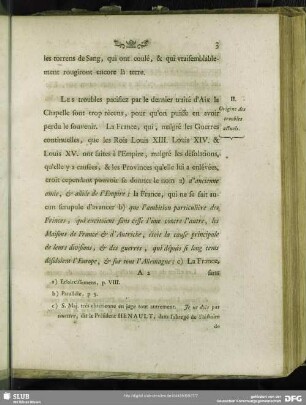 3
les torrens de Sang, qui ont coulé, & qui vraisemblable-
ment rougiront encore la terre.
Les troubles pacifiez par le dernier traité d'Aix la
Chapelle sont trop récens, pour qu'on puisse en avoir
perdu le souvenir. La France, qui, malgré les Guerres
continuelles, que les Rois Louis XIII. Louis XIV. &
Louis XV. ont faites à l'Empire, malgré les désolations,
qu'elle y a causées, & les Provinces qu'elle lui a enlevées,
croit cependant pouvoir se donner le nom a) d'ancienne
amie, & alliée de l'Empire; la France, qui ne se fait au-
cun scrupule d'avancer b) que l'ambition particulière des
Princes, qui
sans cesse l'une contre l'autre, les
Maisons de France & d'Autriche, étoit la cause principale
de leurs divisions, & des guerres, qui dépuis si long tems
désoloient l'Europe, & sur tout l'Allemagne: c) La France,
A 2
sans
II.
Origine des
troubles
actuels.
a) Eclaircissement. p. VIII.
b) Parallèle. p. 3.
c) S. Maj. très chrétienne en juge tout autrement. Je ne dois pas
omettre, dit le Président HENAULT, dans l'abregé de l'histoire
de
SLUB
DFG